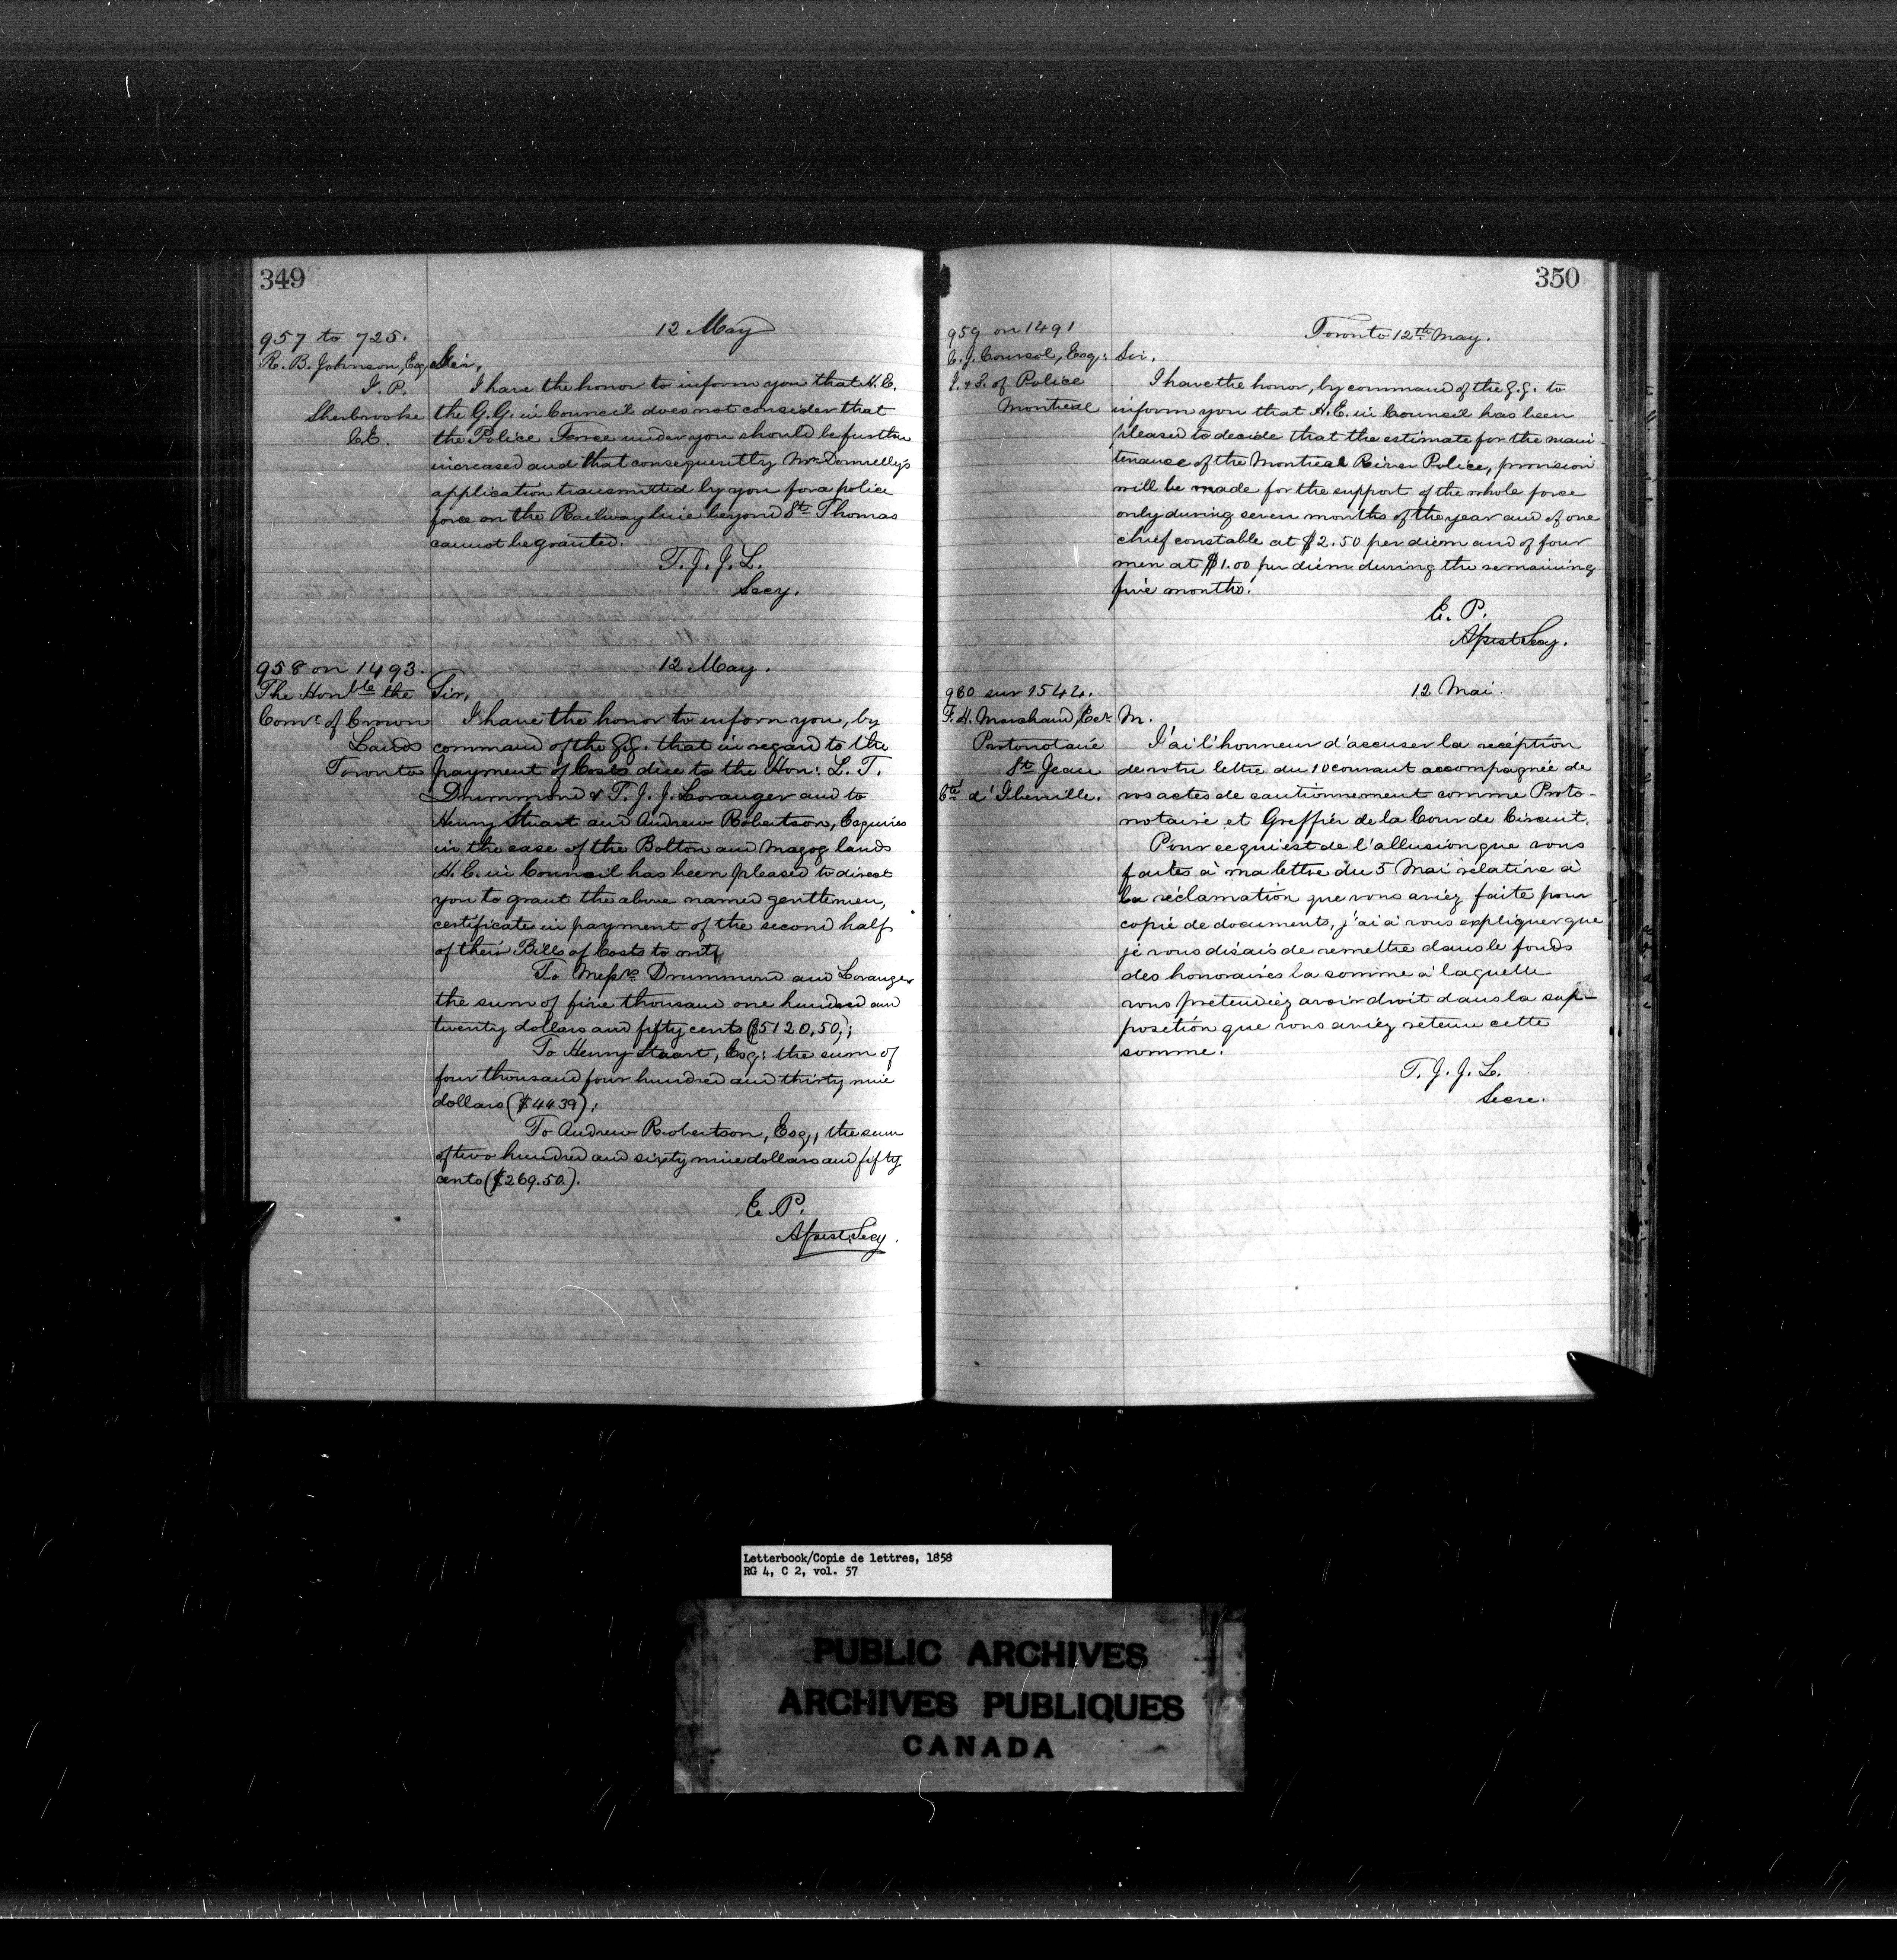 349
957 to 725.
R. B. Johnson, Esq,
J. P.
Sherbrooke
C.E.
12 May
Sir,
I have the honor to inform you that H. E.
the G.G. in Council does not consider that
the Police Force under you should be further
increased and that consequently Mr Donnelly's
application transmitted by you for a police
force on the Railway line beyond St Thomas
cannot be granted.
T. J. J. L.
Secy.
958 on 1493.
The Honble the
Comr of Crown
Lands
Toronto
12 May.
Sir,
I have the honor to inform you, by
command of the G.G. that in regard to the
payment of Costs due to the Hon: L. T.
Drummond & T. J. J. Loranger and to
Henry Stuart and Andrew Robertson, Esquires
in the case of the Bolton and Magog lands
H. E. in Council has been pleased to direct
you to grant the above named gentlemen,
certificates in payment of the second half
of their Bills of Costs to wit,
To Messrs Drummond and Loranger
the sum of five thousand one hundred and
twenty dollars and fifty cents ($5120,50);
To Henry Stuart, Esq: the sum of
four thousand four hundred and thirty nine
dollars ($4439);
To Andrew Robertson, Esq, the sum
of two hundred and sixty nine dollars and fifty
cents ($269.50.).
E. P.
Assist Secy.
350
959 on 1491
C. J. Coursol, Esq:
I. & S. of Police
Montreal
Toronto 12th May.
Sir.
I have the honor, by command of the G.G. to
inform you that H. E. in Council has been
pleased to decide that the estimate for the main-
tenance of the Montreal River Police, provision
will be made for the support of the whole force
only during seven months of the year and of one
chief constable at $2.50 per diem and of four
men at $1.00 per diem during the remaining
five months.
E. P.
Assist Secy.
960 sur 1544.
F. H. Marchand, Ecr
Protonotaire
St Jean
Cté d'Iberville.
12 Mai.
M.
J'ai l'honneur d'accuser la réception
de votre lettre du 10 courant accompagnée de
vos actes de cautionnement comme Proto-
notaire et Greffier de la Cour de Circuit.
Pour ce qui est de l'allusion que vous
faites à ma lettre du 5 Mai relative à
la réclamation que vous aviez faite pour
copie de documents, j'ai à vous expliquer que
je vous disais de remettre dans le fonds
des honoraires la somme à laquelle
vous pretendiez avoir droit dans la sup-
position que vous aviez retenu cette
somme.
T. J. J. L.
Secre.
Letterbook/Copie de lettres, 1858
RG 4, C 2, vol. 57
PUBLIC ARCHIVES
ARCHIVES PUBLIQUES
CANADA